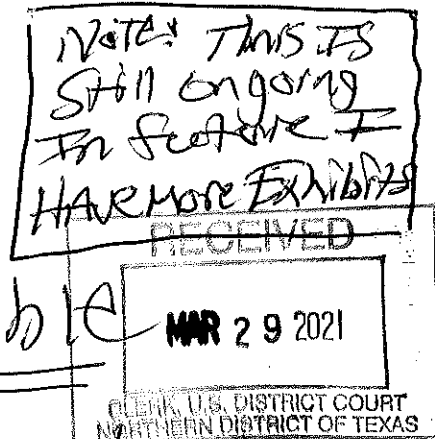 NOTE: THIS IS
Still ongoing
In I
HAVE More Exhibits
RECEIVED
ble
MAR 29 2021
CLERK, U.S. DISTRICT COURT
NORTHERN DISTRICT OF TEXAS